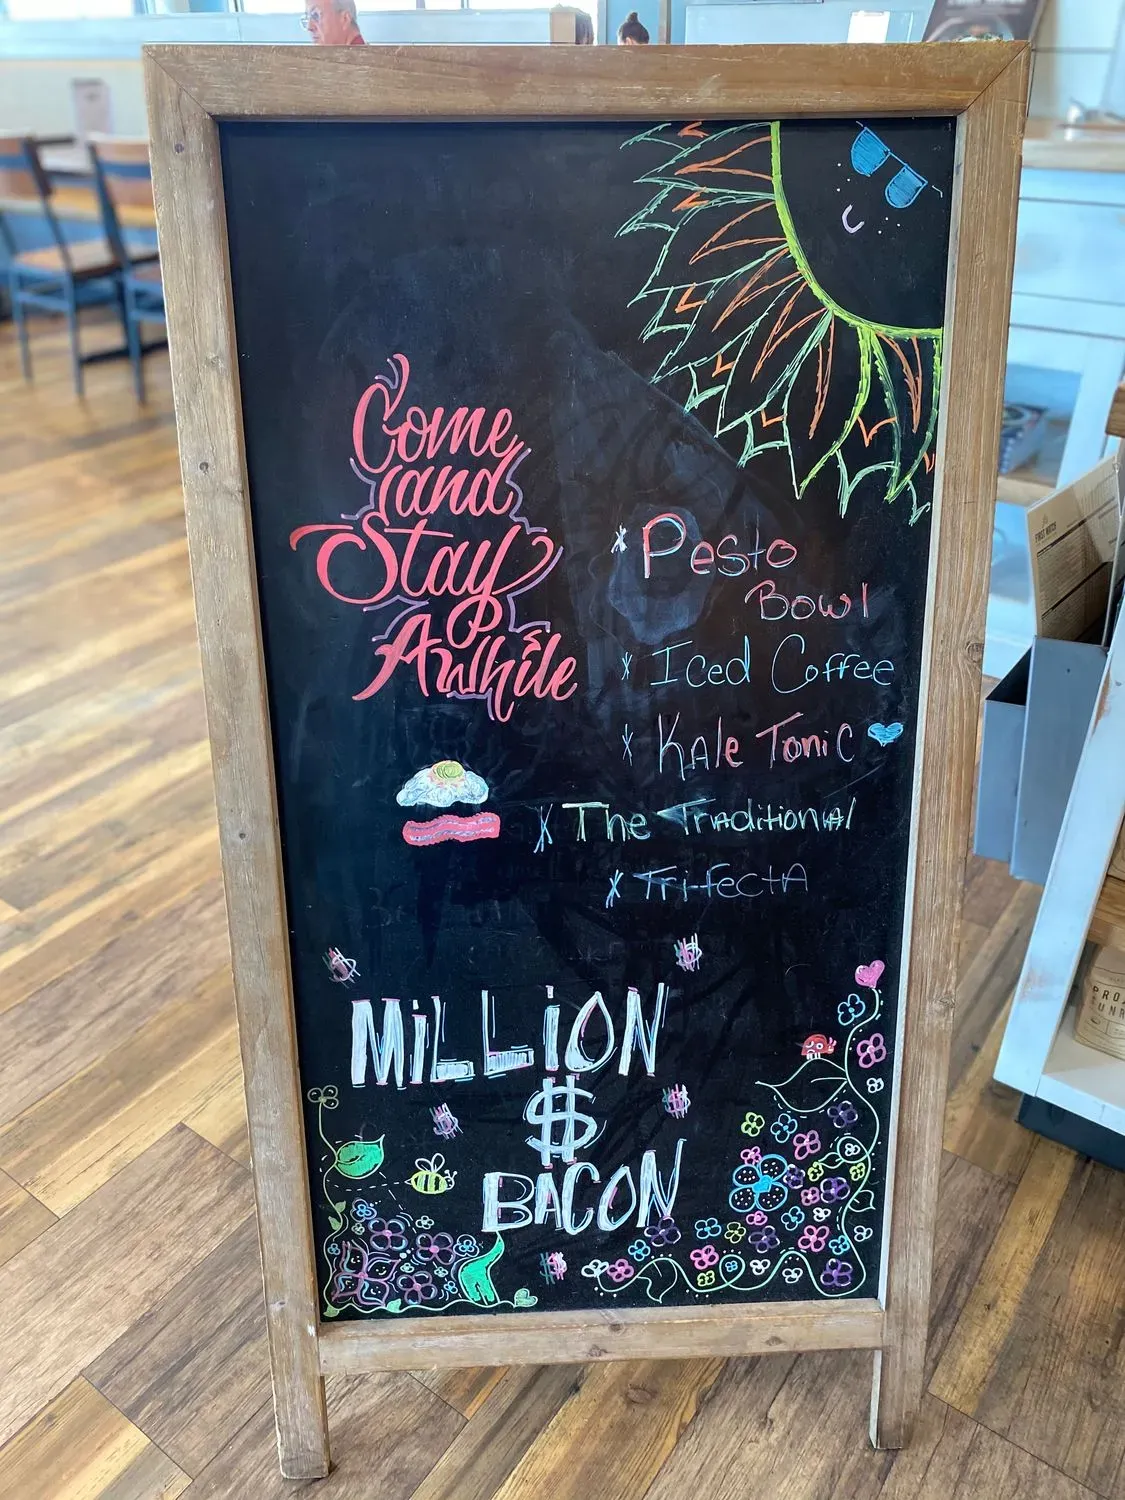 Come
and
Stay
Awhile
Pesto
Bowl
Iced Coffee
Kale Tonic
The Traditional
Trifecta
MiLLiON
$
BACON
FIRST WATCH